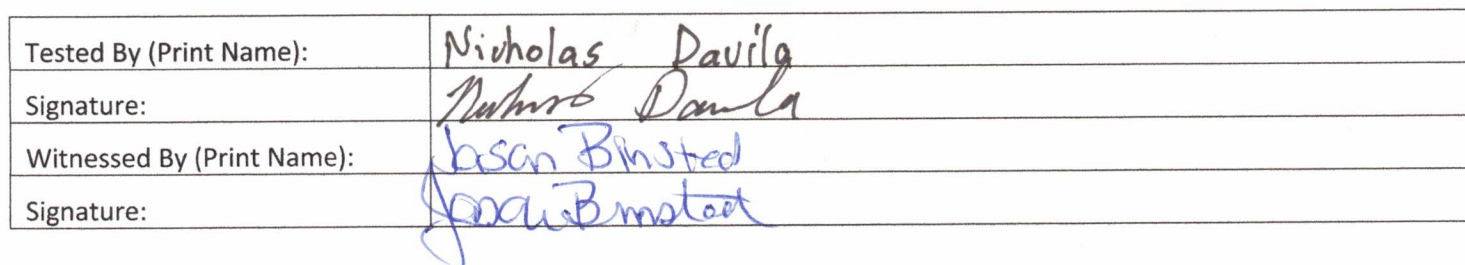 Tested By (Print Name): Nicholas Davila
Signature: Nicholas Davila
Witnessed By (Print Name): Jason Binsted
Signature: Jason Binsted